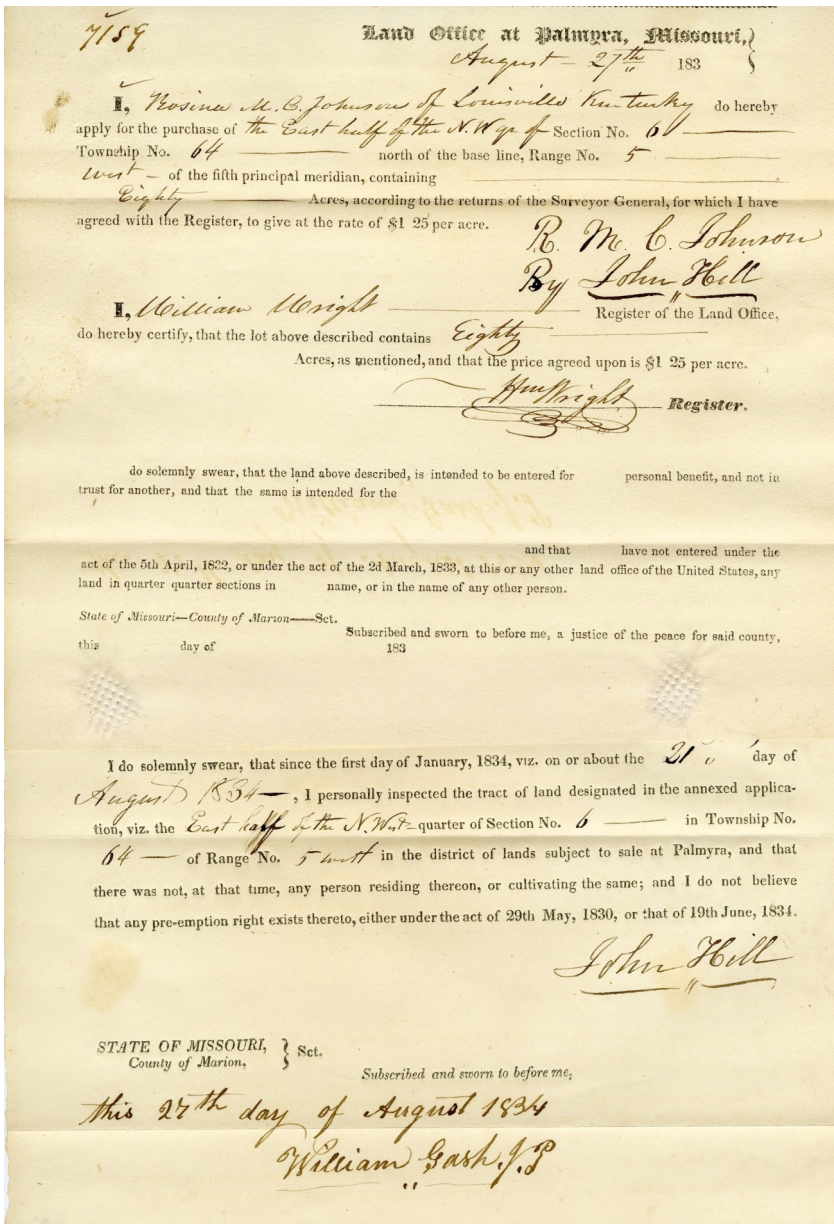 7159
Land Office at Palmyra, Missouri,
August 27th 183
I, Rosina M. C. Johnson of Louisville Kentucky do hereby
apply for the purchase of the East half of the N. W qr of Section No. 6
Township No. 64 north of the base line, Range No. 5
west of the fifth principal meridian, containing
Eighty Acres, according to the returns of the Surveyor General, for which I have
agreed with the Register, to give at the rate of $1 25 per acre.
R. M. C. Johnson
By John Hill
I, William Wright Register of the Land Office,
do hereby certify, that the lot above described contains Eighty
Acres, as mentioned, and that the price agreed upon is $1 25 per acre.
Wm Wright Register.
do solemnly swear, that the land above described, is intended to be entered for personal benefit, and not in
trust for another, and that the same is intended for the
and that have not entered under the
act of the 5th April, 1832, or under the act of the 2d March, 1833, at this or any other land office of the United States, any
land in quarter quarter sections in name, or in the name of any other person.
State of Missouri—County of Marion—Sct.
Subscribed and sworn to before me, a justice of the peace for said county,
this day of 183
I do solemnly swear, that since the first day of January, 1834, viz. on or about the 21 day of
August 1834—, I personally inspected the tract of land designated in the annexed applica-
tion, viz. the East half of the N. West quarter of Section No. 6 in Township No.
64 of Range No. 5 west in the district of lands subject to sale at Palmyra, and that
there was not, at that time, any person residing thereon, or cultivating the same; and I do not believe
that any pre-emption right exists thereto, either under the act of 29th May, 1830, or that of 19th June, 1834.
John Hill
STATE OF MISSOURI,
County of Marion, } Sct.
Subscribed and sworn to before me,
this 27th day of August 1834
William Gash J. P